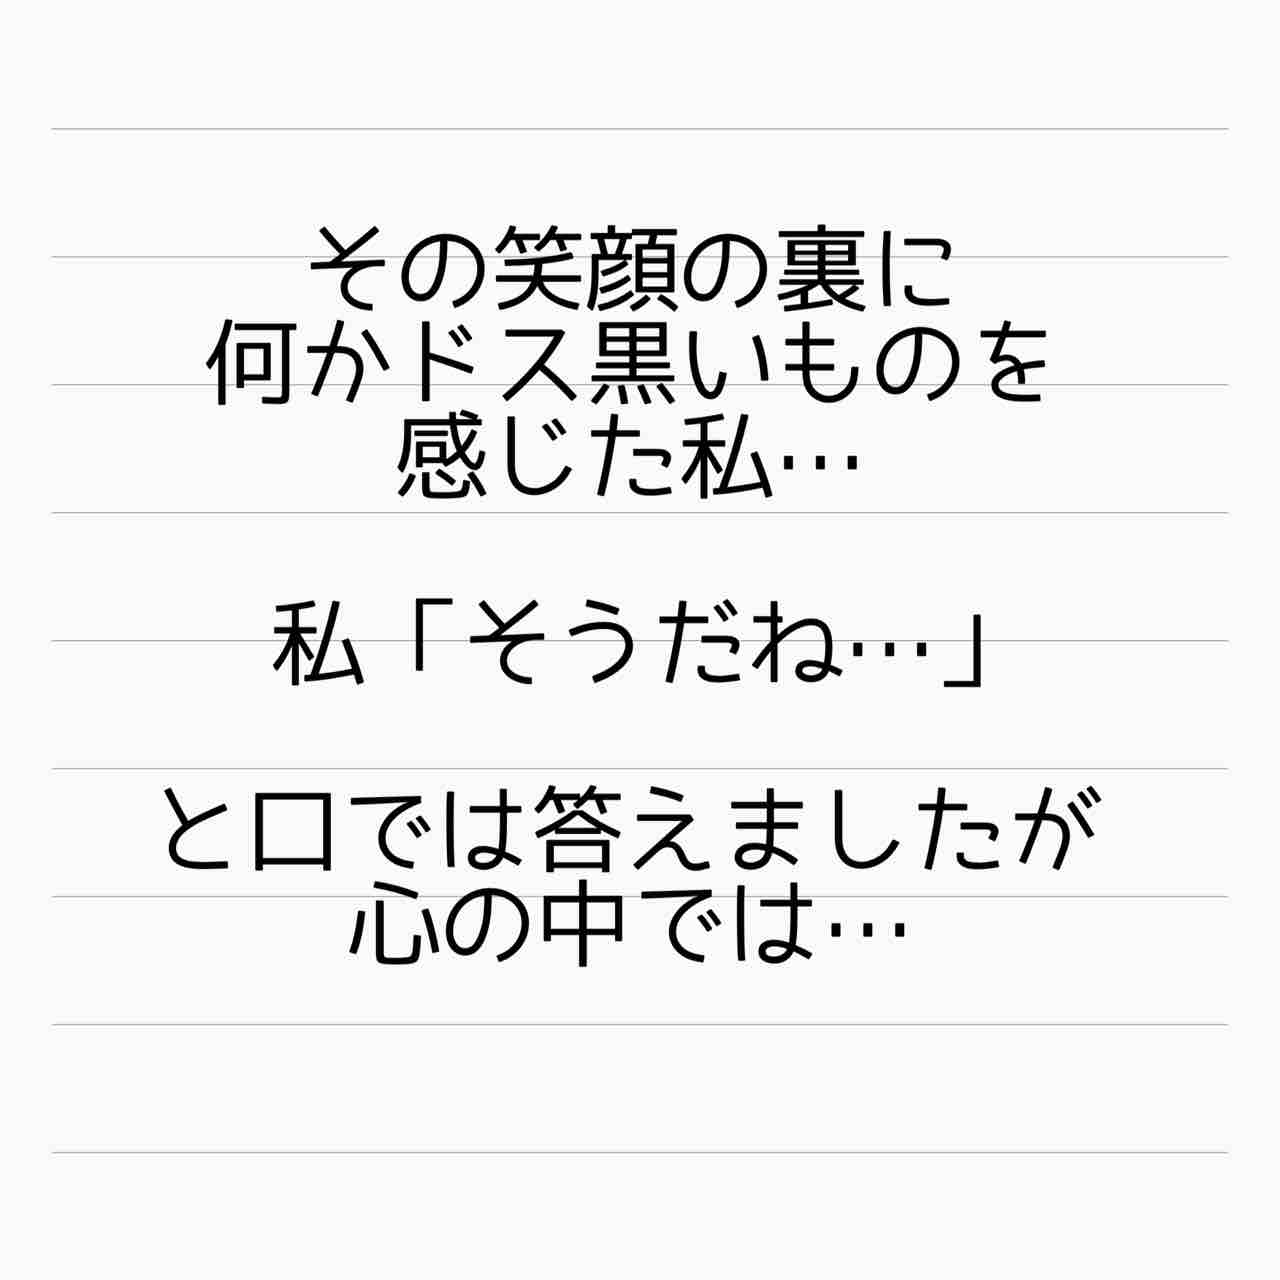 その笑顔の裏に
何かドス黒いものを
感じた私…
私「そうだね…」
と口では答えましたが
心の中では…